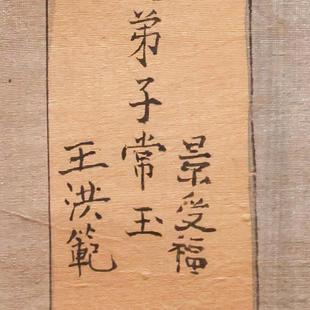 景受福
弟子常玉
王洪範